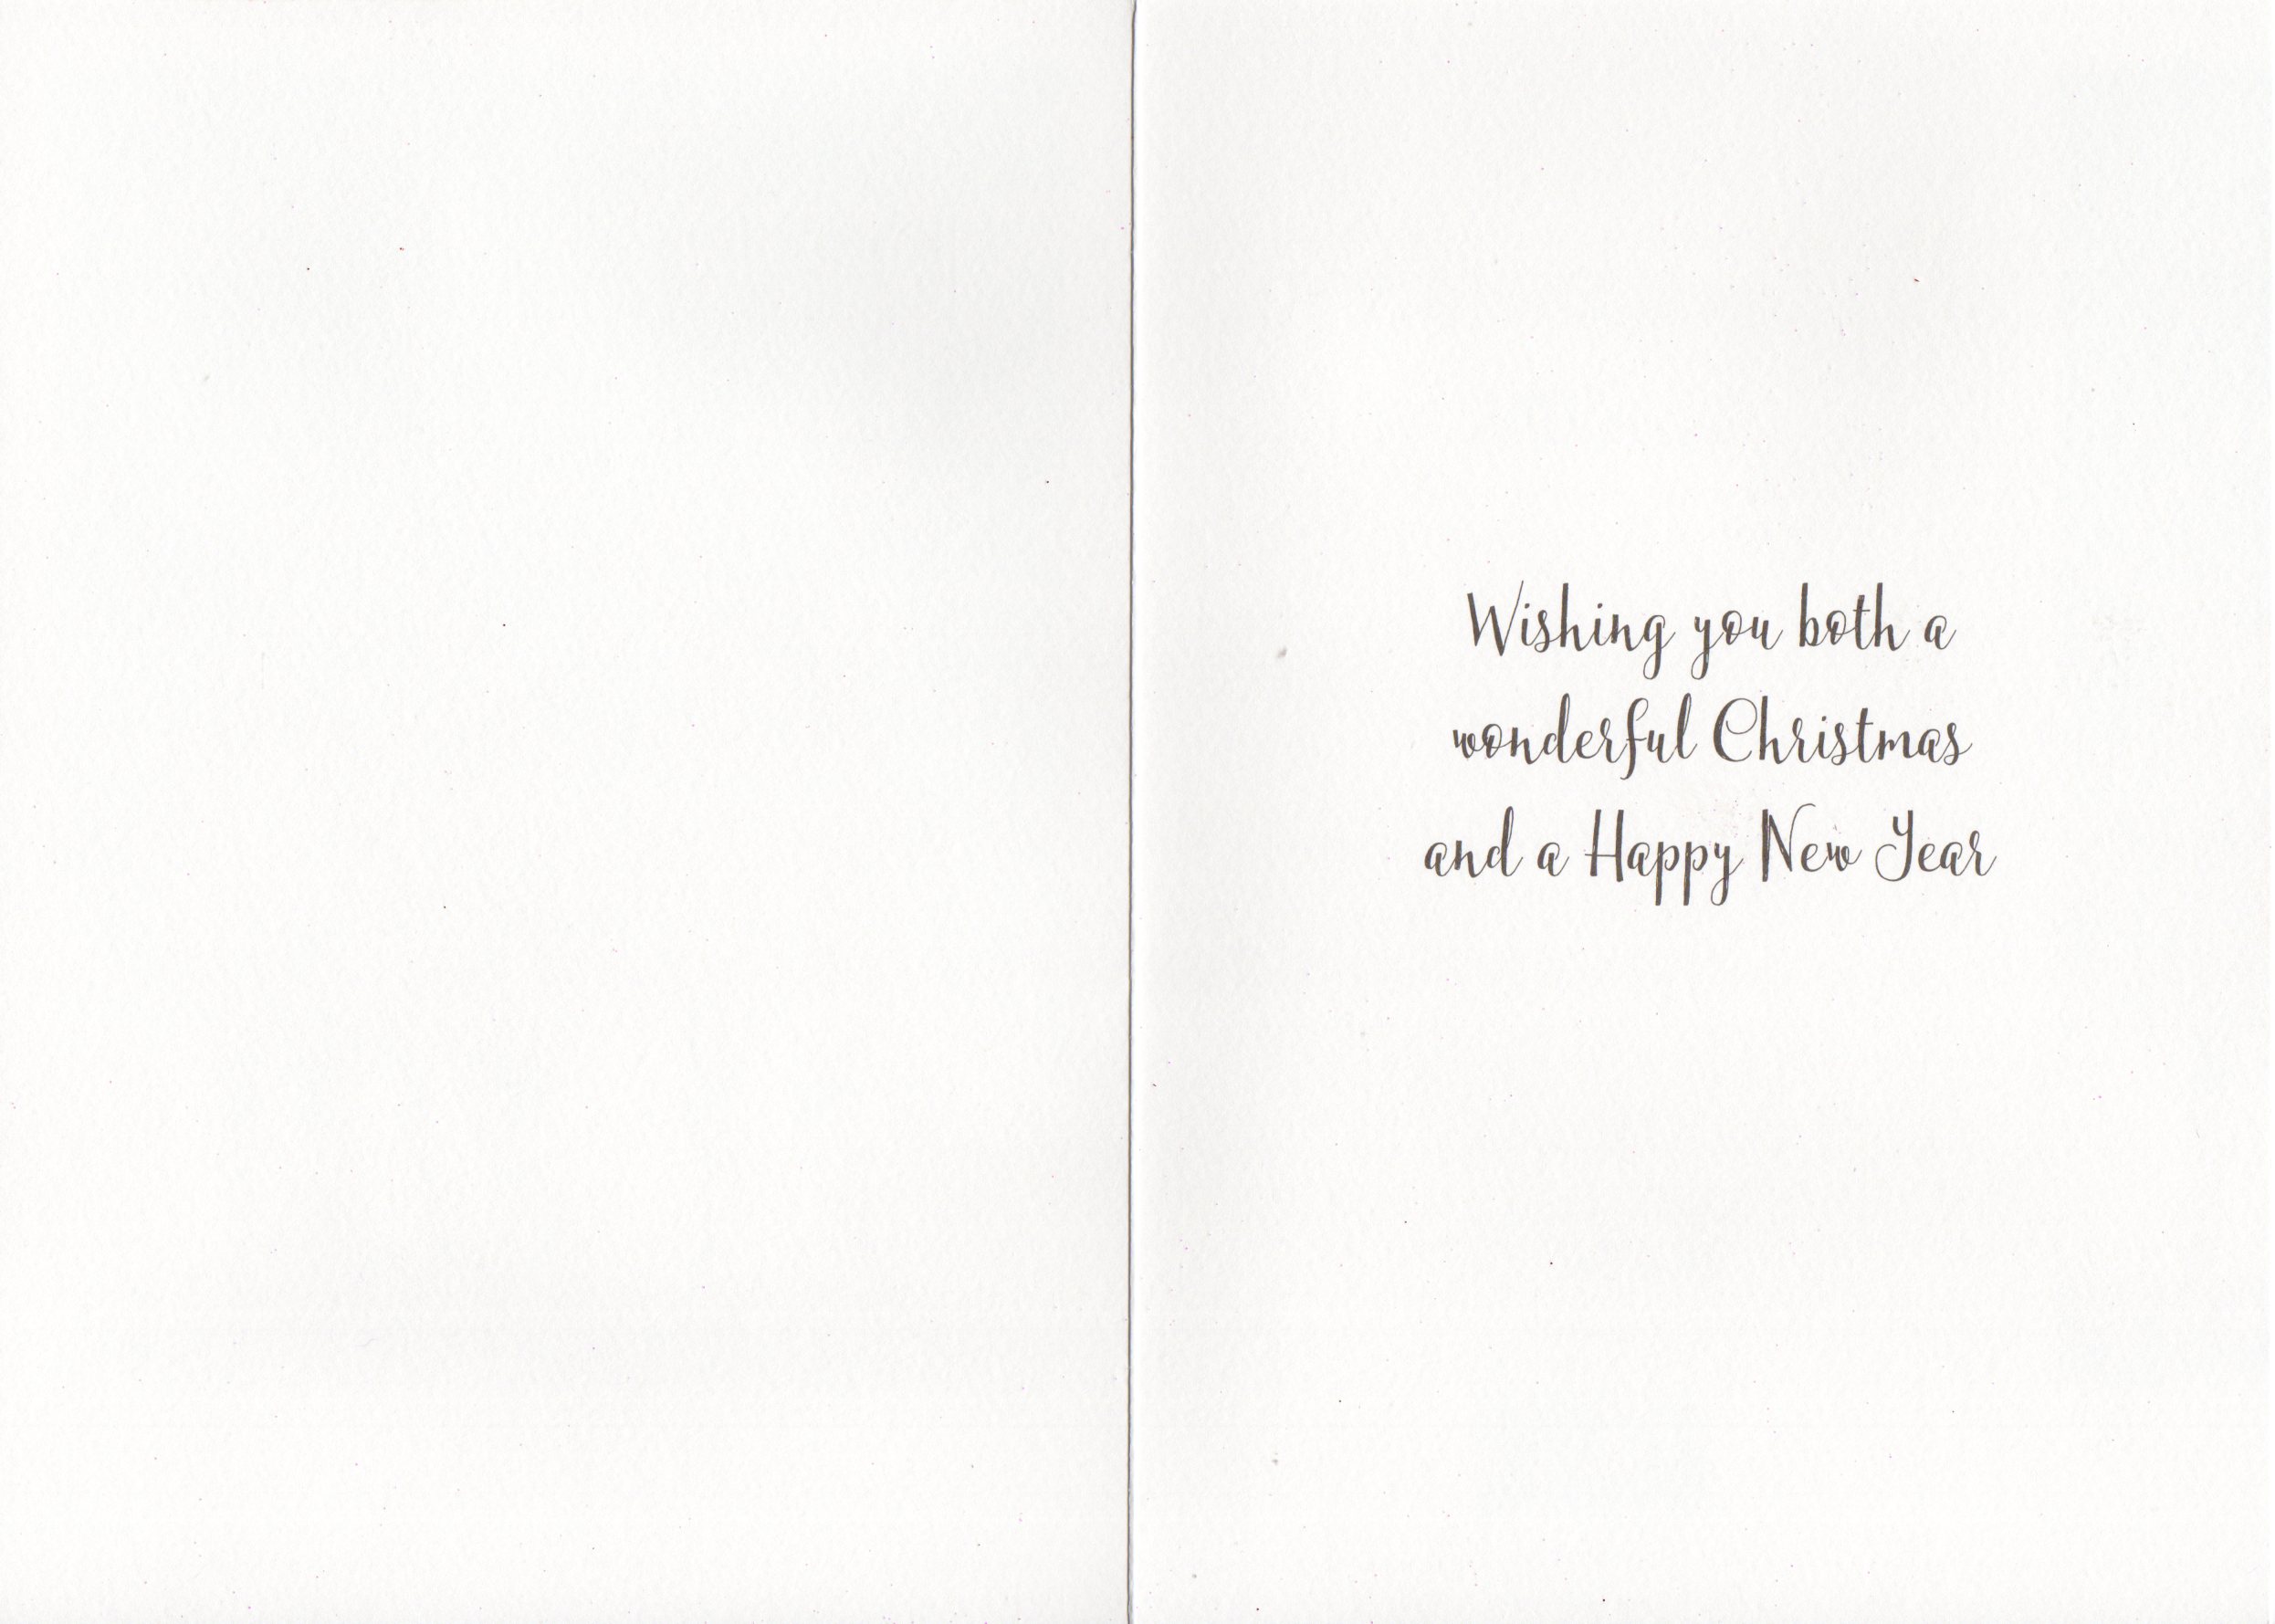 Wishing you both a
wonderful Christmas
and a Happy New Year